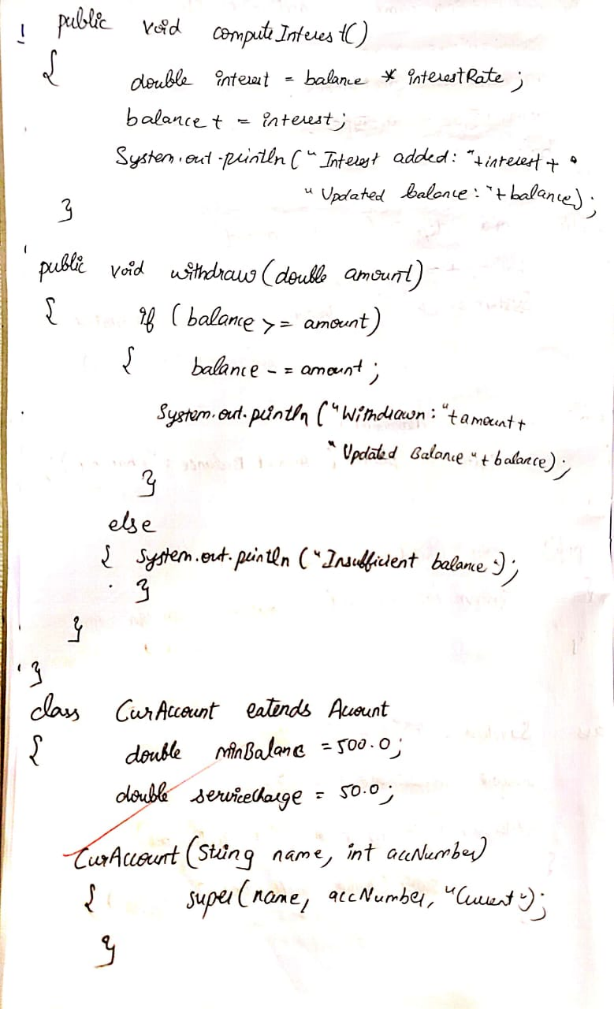 public void computeInterest()
{
double interest = balance * interestRate;
balance + = interest;
System.out.println("Interest added: "+interest+
"Updated balance: "+balance);
}
public void withdraw(double amount)
{ if (balance >= amount)
{ balance - = amount;
System.out.println("Withdrawn: "+amount+
"Updated Balance "+balance);
}
else
{ System.out.println("Insufficient balance");
}
}
}
class CurAccount extends Account
{ double minBalance = 500.0;
double serviceCharge = 50.0;
CurAccount(String name, int accNumber)
{ super(name, accNumber, "Current");
}